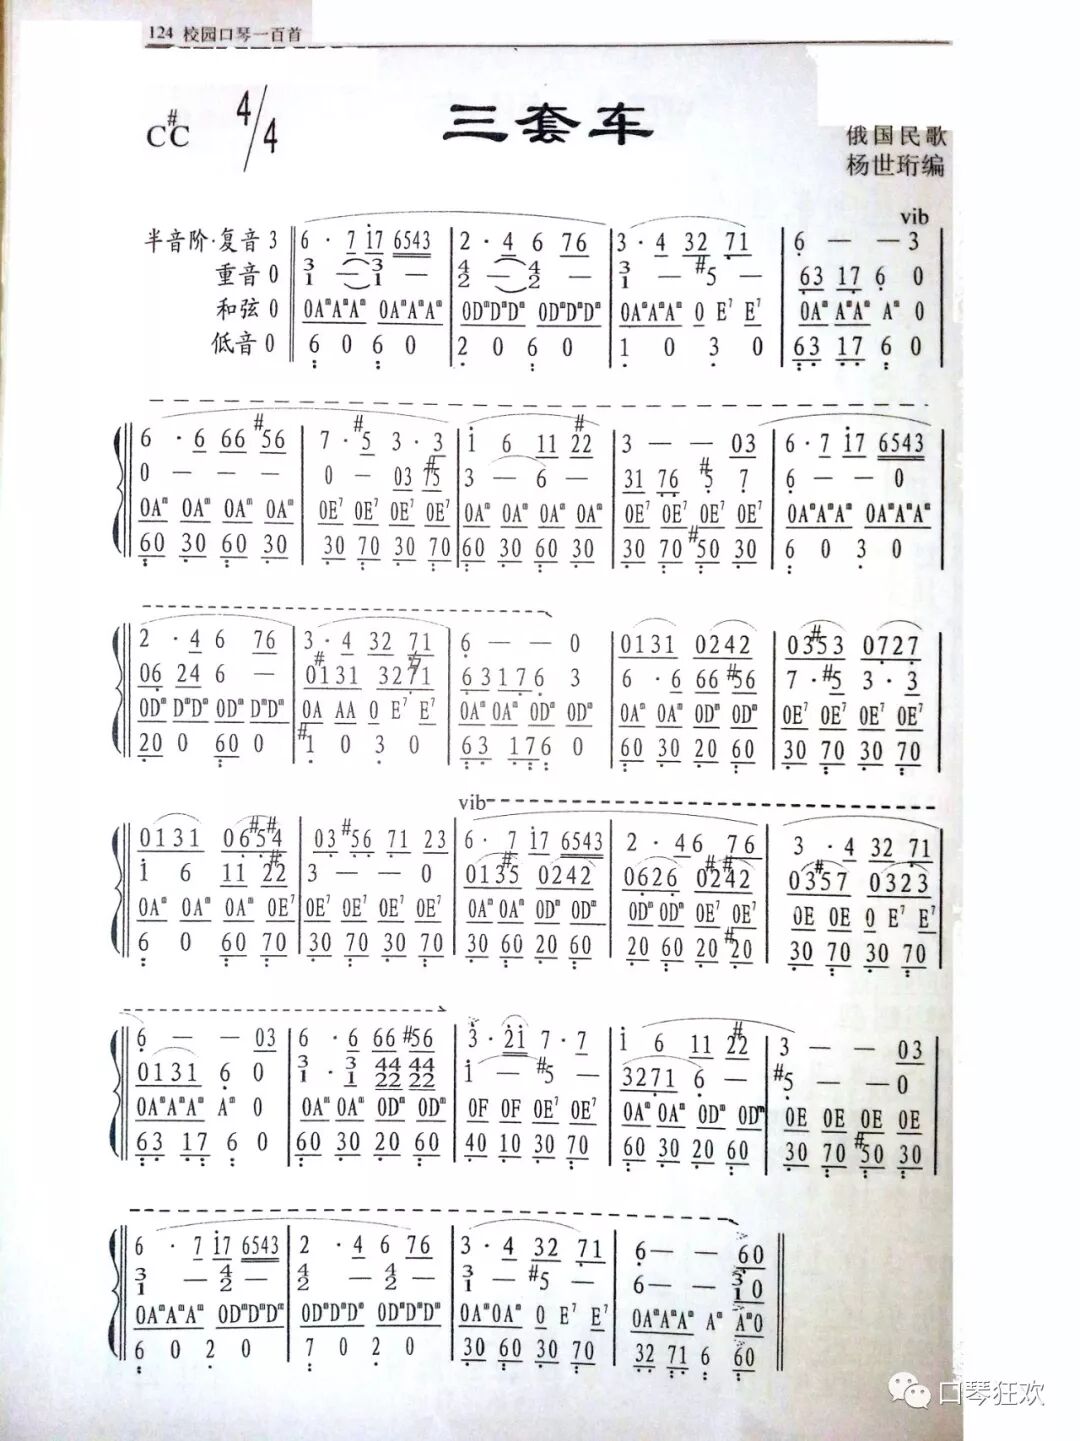 124 校园口琴一百首
C#C 4/4 三套车
俄国民歌
杨世珩编
vib
半音阶·复音 3 6 · 7 i7 6543 2 · 4 6 76 3 · 4 32 71 6 — — 3
重音 0 3/1 — 3/1 — 4/2 — 4/2 — 3/1 — #5 — 63 17 6 0
和弦 0 0AmAmAm 0AmAmAm 0DmDmDm 0DmDmDm 0AmAmAm 0 E7 E7 0Am AmAm Am 0
低音 0 6 0 6 0 2 0 6 0 1 0 3 0 63 17 6 0
6 · 6 66 #56 7 · #5 3 · 3 i 6 11 #22 3 — — 03 6 · 7 i7 6543
0 — — — 0 — 03 #75 3 — 6 — 31 76 #5 7 6 — — 0
0Am 0Am 0Am 0Am 0E7 0E7 0E7 0E7 0Am 0Am 0Am 0Am 0E7 0E7 0E7 0E7 0AmAmAm 0AmAmAm
60 30 60 30 30 70 30 70 60 30 60 30 30 70 #50 30 6 0 3 0
2 · 4 6 76 3 · 4 32 71 6 — — 0 0131 0242 03#53 0727
06 24 6 — #0131 3271 63176 3 6 · 6 66 #56 7 · #5 3 · 3
0Dm DmDm 0Dm DmDm 0A AA 0 E7 E7 0Am 0Am 0Dm 0Dm 0Am 0Am 0Dm 0Dm 0E7 0E7 0E7 0E7
20 0 60 0 #1 0 3 0 63 176 0 60 30 20 60 30 70 30 70
vib
0131 06#5#4 03 #56 71 23 6 · 7 i7 6543 2 · 46 76 3 · 4 32 71
i 6 11 #22 3 — — 0 013#5 0242 0626 0#2#42 03#57 0323
0Am 0Am 0Am 0E7 0E7 0E7 0E7 0E7 0Am 0Am 0Dm 0Dm 0Dm 0Dm 0E7 0E7 0E 0E 0 E7 E7
6 0 60 70 30 70 30 70 30 60 20 60 20 60 20 #20 30 70 30 70
6 — — 03 6 · 6 66 #56 3 · 2i 7 · 7 i 6 11 #22 3 — — 03
0131 6 0 3/1 · 3/1 44/22 44/22 i — #5 — 3271 6 — #5 — — 0
0AmAmAm Am 0 0Am 0Am 0Dm 0Dm 0F 0F 0E7 0E7 0Am 0Am 0Dm 0Dm 0E 0E 0E 0E
63 17 6 0 60 30 20 60 40 10 30 70 60 30 20 60 30 70 #50 30
6 · 7 i7 6543 2 · 4 6 76 3 · 4 32 71 6 — — 60
3/1 — 4/2 — 4/2 — 4/2 — 3/1 — #5 — 6 — — 3/1 0
0AmAmAm 0DmDmDm 0DmDmDm 0DmDmDm 0Am0Am 0 E7 E7 0AmAmAm Am Am0
6 0 2 0 7 0 2 0 30 60 30 70 32 71 6 60
口琴狂欢